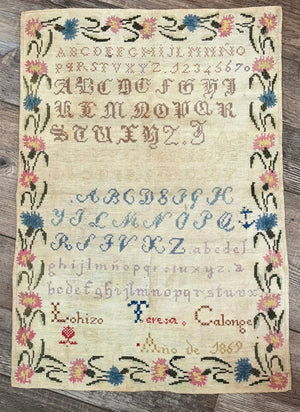 ABCDEFGHIJLMNÑO
PQRSTVXYZ.1234567o
ABCDEFGHIJ
KLMNOPQR
STUXYZ.J
.ABCDEFGH
YJLMNOPQ
RSTVXYZ.abcdef
ghijlmnopqrstuxyz.a
bcdefghijlmnopqrstuvx
Lo hizo Teresa. Calonge
Ano de 1869